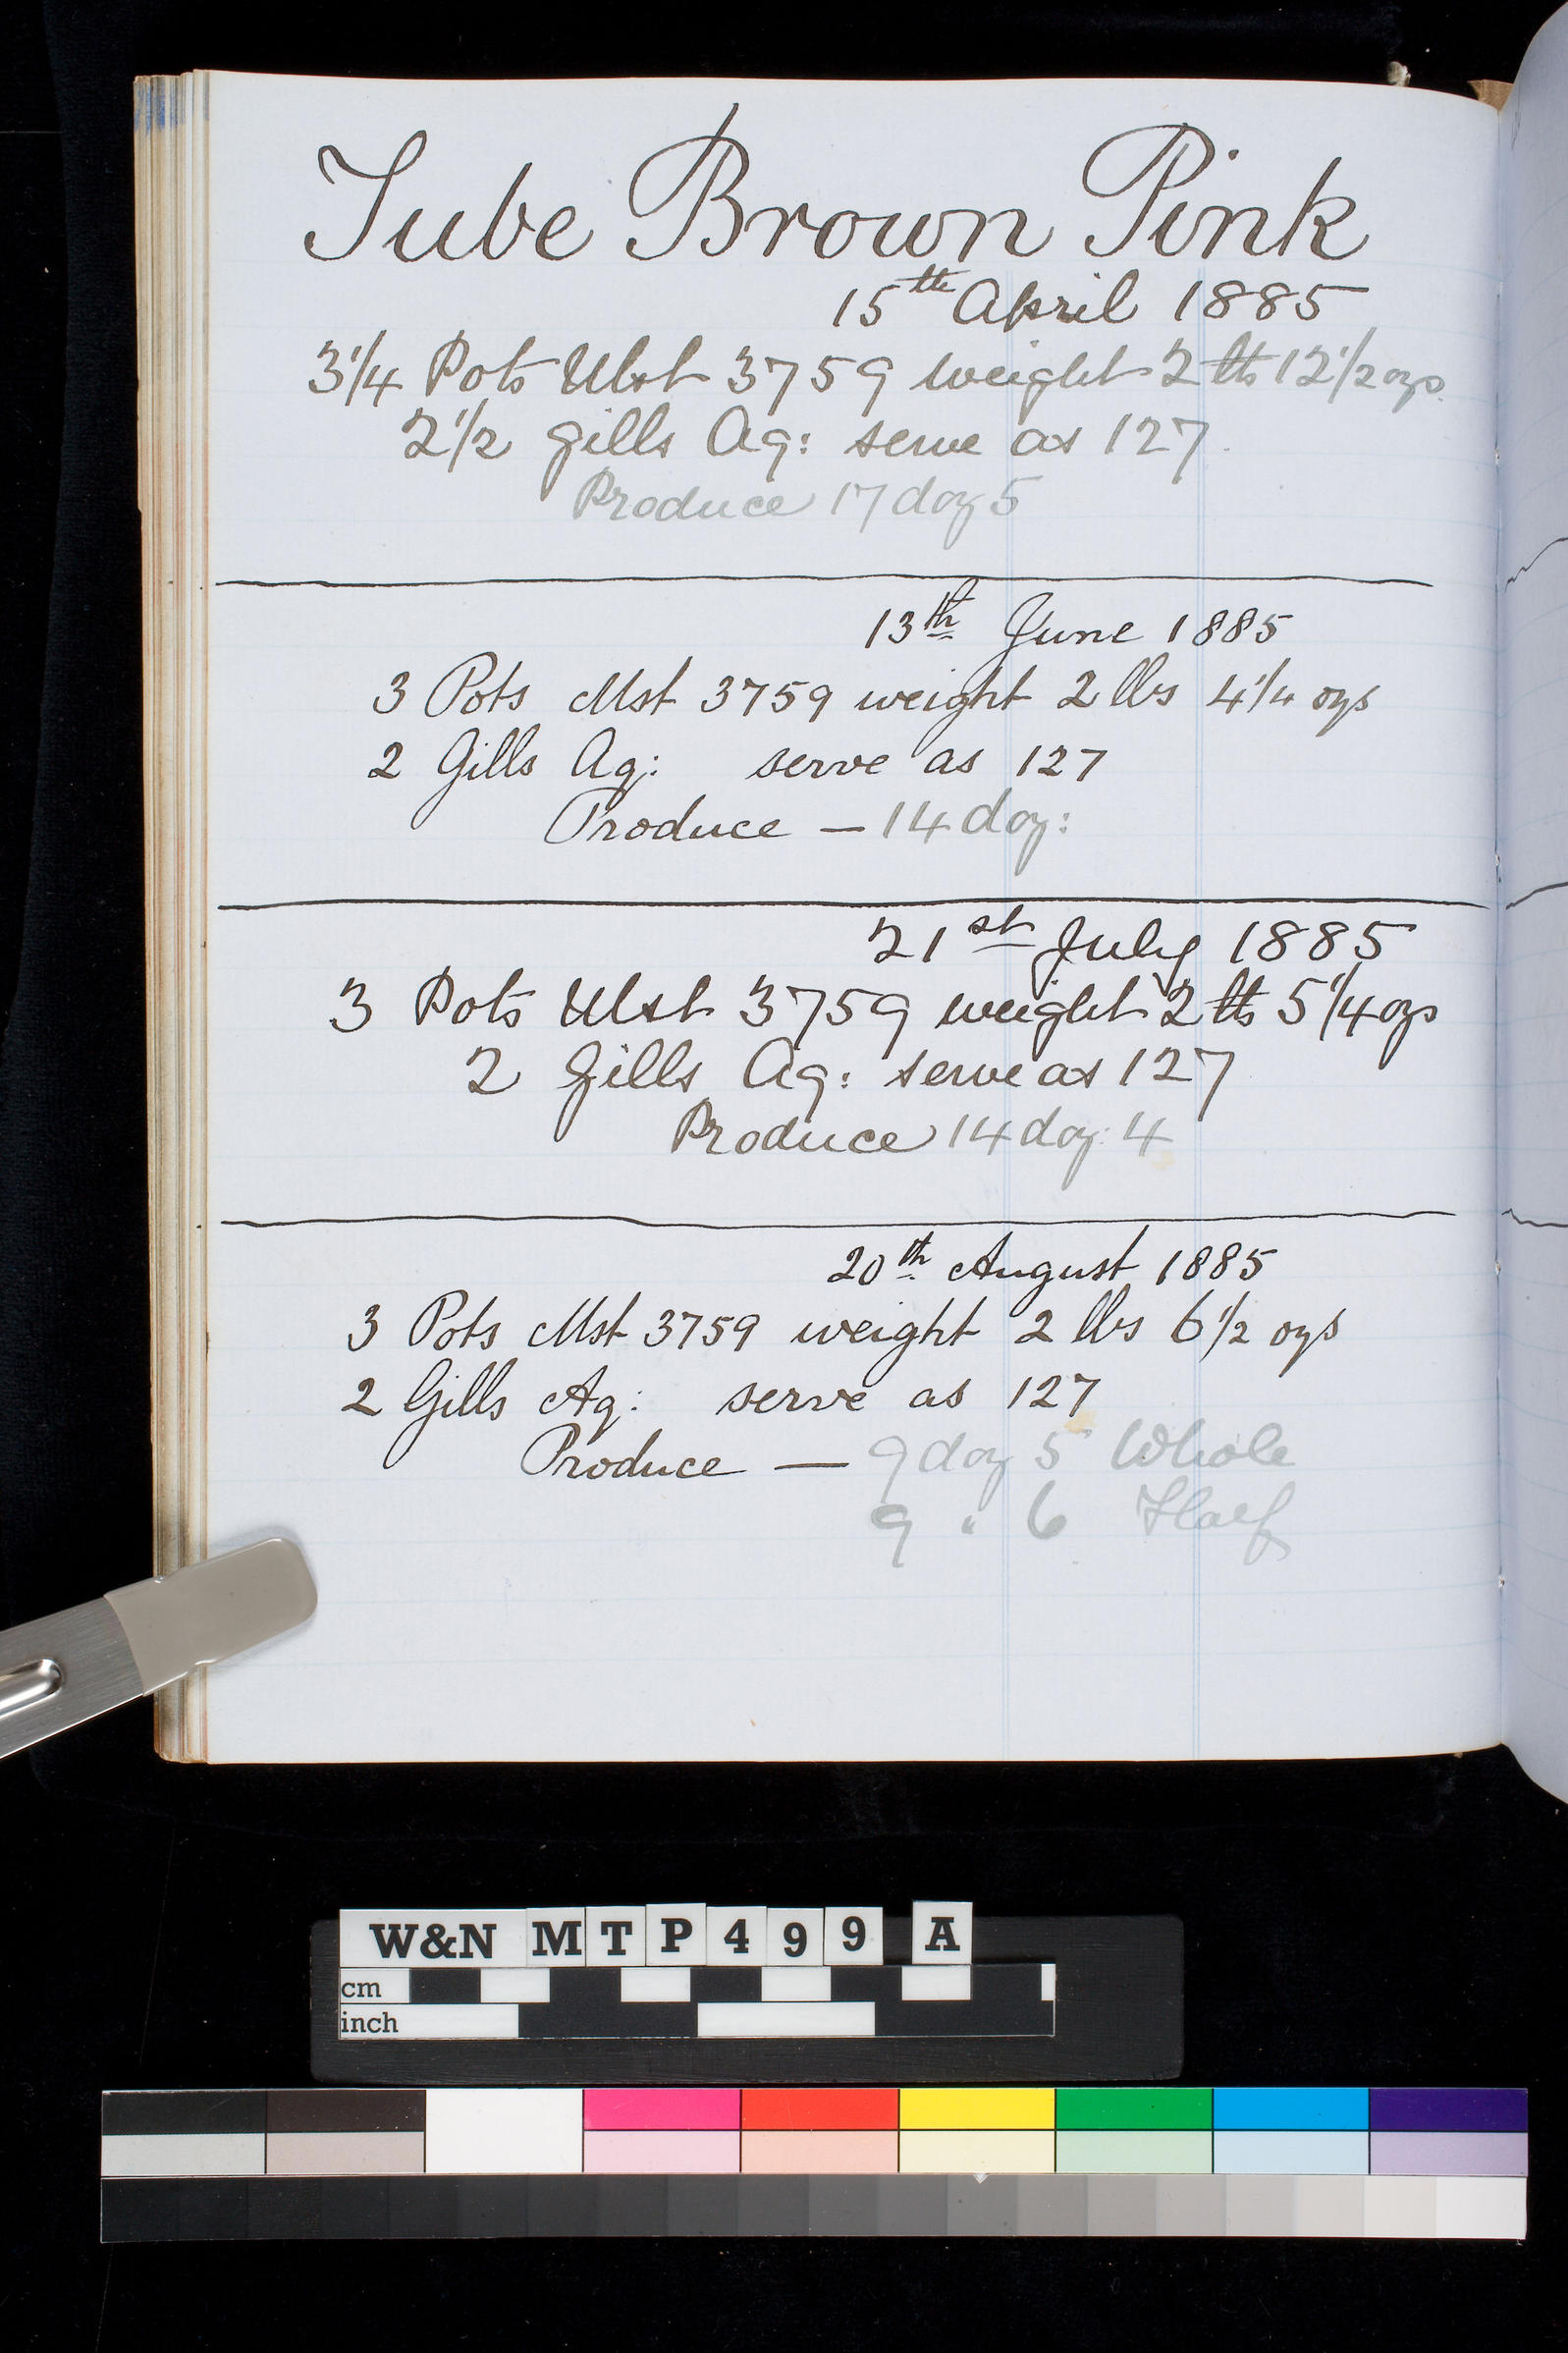 Tube Brown Pink
15th April 1885
3 1/4 Pots Mst 3759 weight 2 lbs 12 1/2 ozs
2 1/2 gills Aq: serve as 127
Produce 17 doz 5
13th June 1885
3 Pots Mst 3759 weight 2 lbs 4 1/4 ozs
2 Gills Aq: serve as 127
Produce — 14 doz:
21st July 1885
3 Pots Mst 3759 weight 2 lbs 5 1/4 ozs
2 Gills Aq: serve as 127
Produce 14 doz: 4
20th August 1885
3 Pots Mst 3759 weight 2 lbs 6 1/2 ozs
2 Gills Aq: serve as 127
Produce — 9 doz 5 Whole
9 " 6 Half
W&N MTP499 A
cm
inch